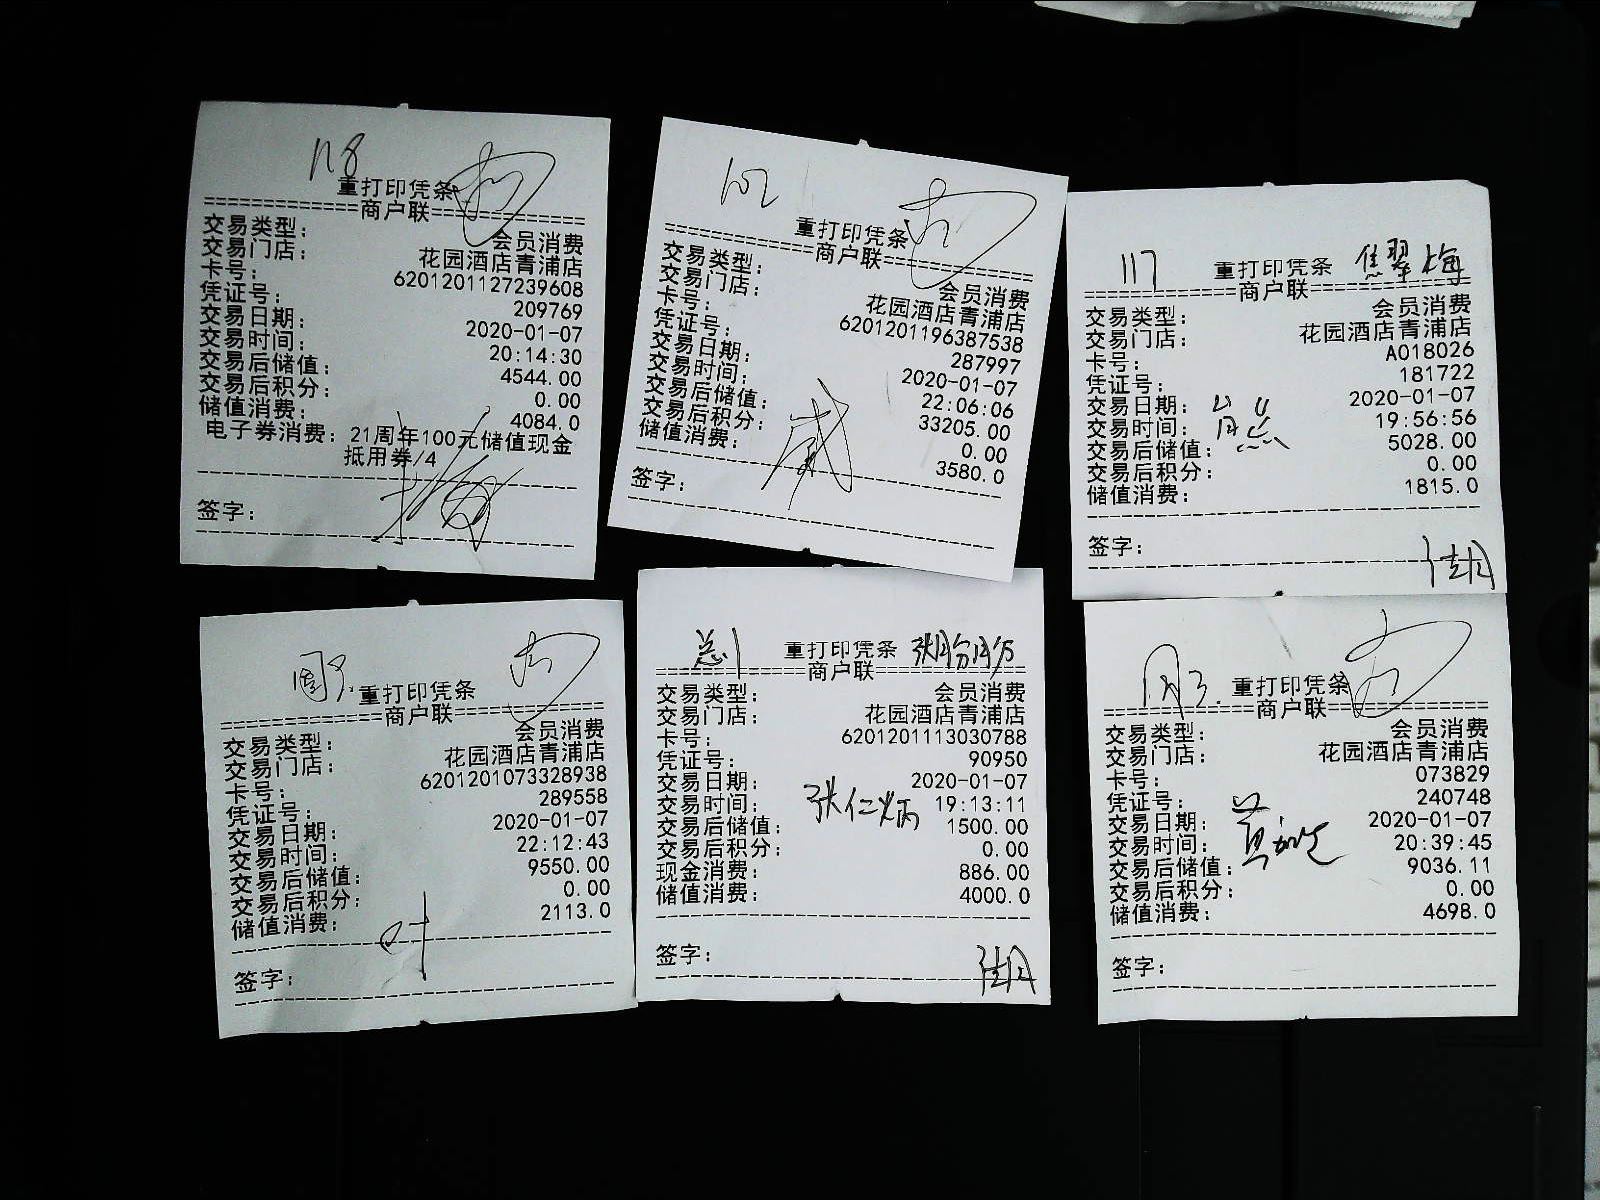 118
重打印凭条
============商户联============
交易类型: 会员消费
交易门店: 花园酒店青浦店
卡号: 6201201127239608
凭证号: 209769
交易日期: 2020-01-07
交易时间: 20:14:30
交易后储值: 4544.00
交易后积分: 0.00
储值消费: 4084.0
电子券消费: 21周年100元储值现金
抵用券/4
签字:
102
重打印凭条
============商户联============
交易类型: 会员消费
交易门店: 花园酒店青浦店
卡号: 6201201196387538
凭证号: 287997
交易日期: 2020-01-07
交易时间: 22:06:06
交易后储值: 33205.00
交易后积分: 0.00
储值消费: 3580.0
签字:
117 重打印凭条 焦翠梅
============商户联============
交易类型: 会员消费
交易门店: 花园酒店青浦店
卡号: A018026
凭证号: 181722
交易日期: 2020-01-07
交易时间: 19:56:56
交易后储值: 5028.00
交易后积分: 0.00
储值消费: 1815.0
签字:
重打印凭条
============商户联============
交易类型: 会员消费
交易门店: 花园酒店青浦店
卡号: 6201201073328938
凭证号: 289558
交易日期: 2020-01-07
交易时间: 22:12:43
交易后储值: 9550.00
交易后积分: 0.00
储值消费: 2113.0
叶
签字:
总1 重打印凭条
============商户联============
交易类型: 会员消费
交易门店: 花园酒店青浦店
卡号: 6201201113030788
凭证号: 90950
交易日期: 2020-01-07
交易时间: 张仁炳 19:13:11
交易后储值: 1500.00
交易后积分: 0.00
现金消费: 886.00
储值消费: 4000.0
签字:
重打印凭条
============商户联============
交易类型: 会员消费
交易门店: 花园酒店青浦店
卡号: 073829
凭证号: 240748
交易日期: 2020-01-07
交易时间: 20:39:45
交易后储值: 9036.11
交易后积分: 0.00
储值消费: 4698.0
签字: